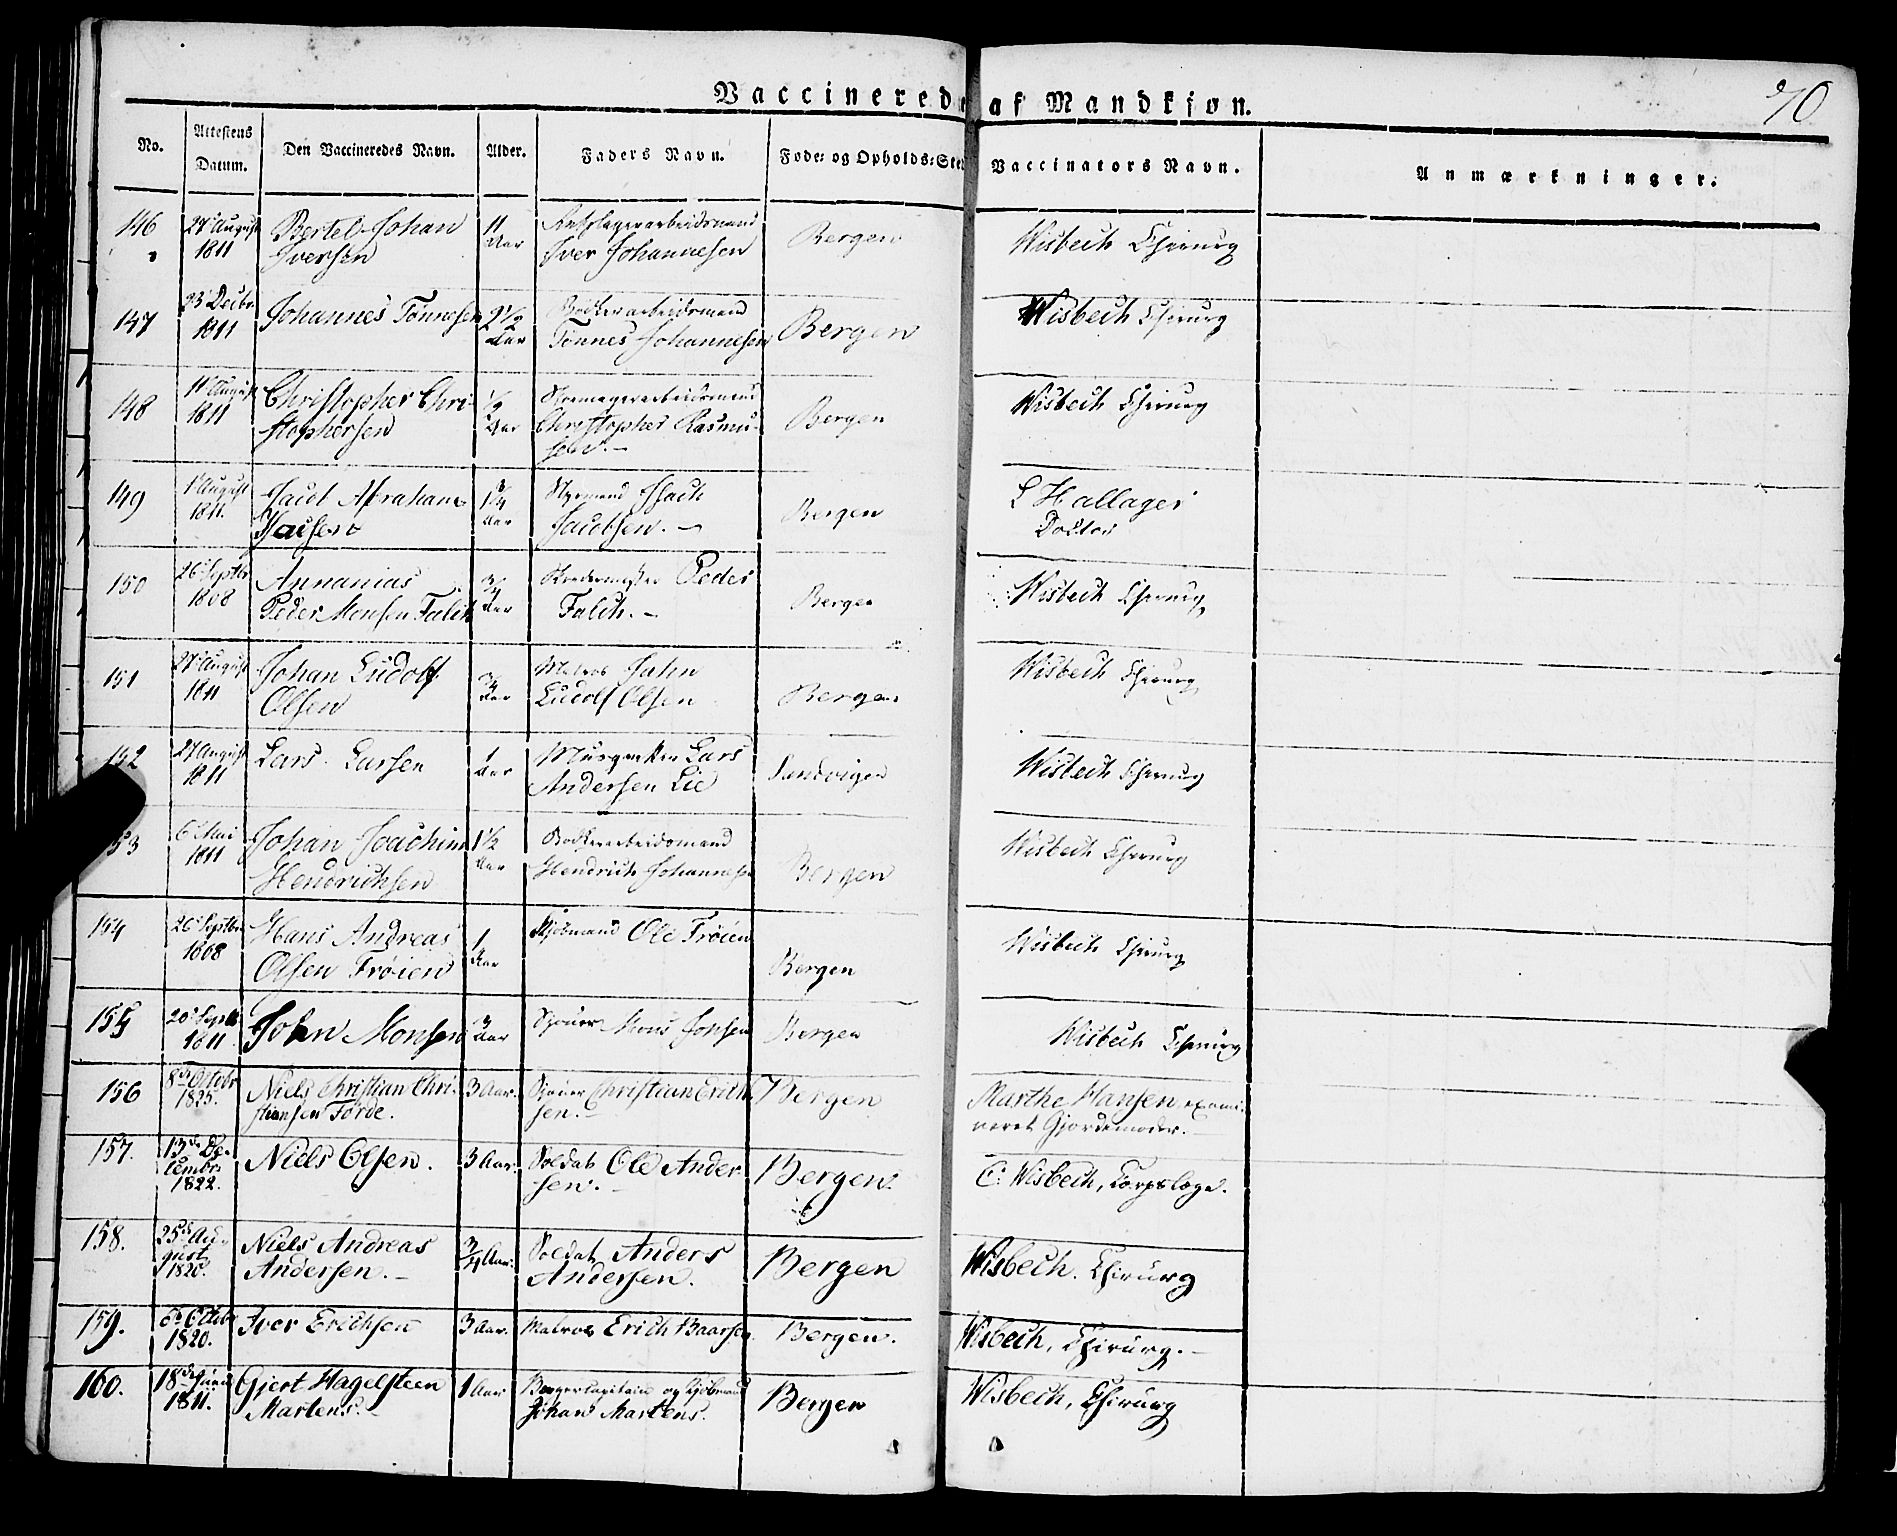 70
Vaccinerede af Mandkjøn.
No. Attestens Datum. Den Vaccineredes Navn. Alder. Faders Navn. Føde- og Opholds-Sted Vaccinators Navn. Anmærkninger.
146 27 August Bertel Johan 11 Iver Johannesen Bergen Wisbech Chirurg
1811 Iversen Aar
147 23 Decbr Johannes Tønnesen 2 1/2 Bødkerarbeidsmand Bergen Wisbech Chirurg
1811 Aar Tønnes Johannesen
148 August Christopher Chri- 1/2 Skomagerarbeidsmand Bergen Wisbech Chirurg
1811 stophersen Aar Christopher Rasmu-
sen. –
149 August Jacob Abraham Styrmand Isach Bergen L Hallager
1811. Isacsen Aar Jacobsen. – Doctor
150 26 Septbr Annanias 3/4 Peder Bergen Wisbech Chirurg
1808 Peder Monsen Falch Aar Falch. –
151 27 August Johan Ludolf 3/4 Matros Jahn Bergen Wisbech Chirurg
1811 Olsen Aar Ludolf Olsen
152 27 August Lars Larsen 1 Lars Sandvigen Wisbech Chirurg
1811 Aar Andersen Lie
53 6 Mai Johan Joachim 1 1/2 Bødkerarbeidsmand Bergen Wisbech Chirurg
1811 Hendrichsen Aar Hendrich Johannesen
154 26 Septbr Hans Andreas 1 Kjøbmand Ole Frøien Bergen Wisbech Chirurg
1808 Olsen Frøien Aar
155 20 Septb John Monsen Aar Sjouer Mons Jonsen Bergen Wisbech Chirurg
1811
156 8de Octobr Niels Christian Chri- 3 Aar. Sjouer Christian Erich- Bergen Marthe Hansen, exami-
1825. stiansen Førde. sen. – neret Gjordemoder. –
157. 13de De- Niels Olsen. 3 Aar. Soldat Ole Ander- Bergen. C. Wisbech, Corpslæge.
cembr. sen. –
1822.
158. 25de Au- Niels Andreas 3/4 Aar. Soldat Anders Bergen Wisbech. Chirurg
gust Andersen. – Andersen.
1820.
159. 6te Octobr Iver Erichsen 3 Aar. Matros Erich Baarsen. Bergen. Wisbech, Chirurg. –
1820.
160. 18de Gjert Hagelsteen 1 Aar Borgercapitain og Kjøbmand Bergen Wisbech, Chirurg
1811. Martens. – Johan Martens.